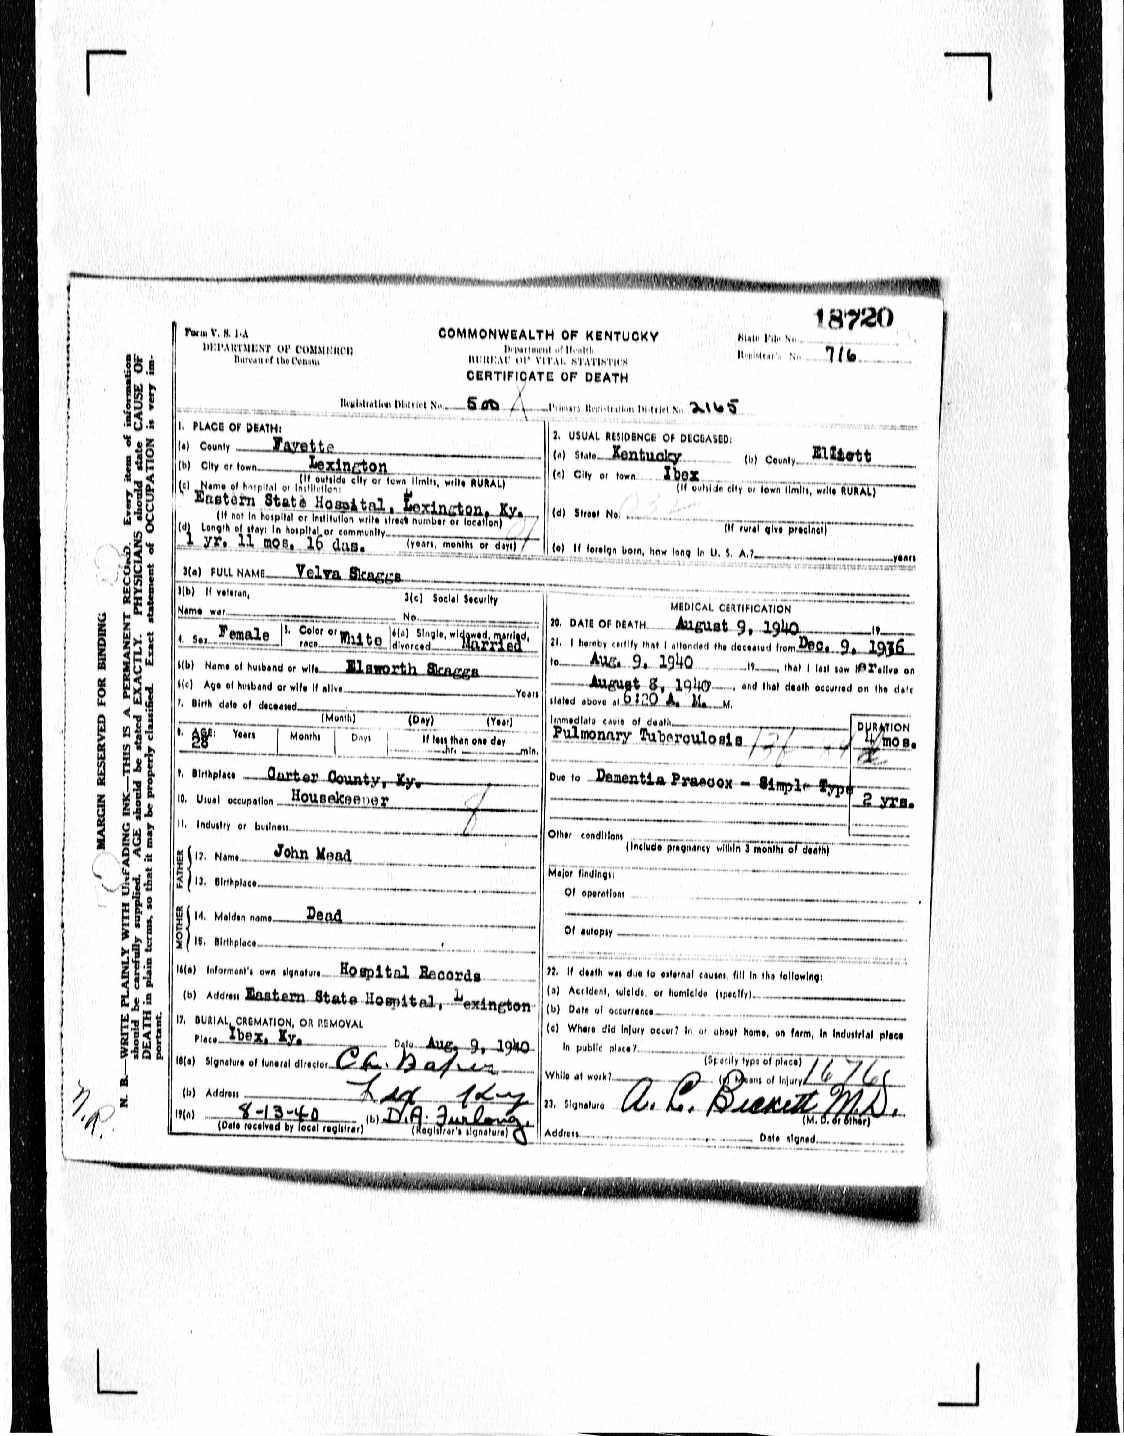 18720
Form V. S. 1-A
DEPARTMENT OF COMMERCE
Bureau of the Census
COMMONWEALTH OF KENTUCKY
Department of Health
BUREAU OF VITAL STATISTICS
CERTIFICATE OF DEATH
State File No.
Registrar's No. 716
Registration District No. 500 Primary Registration District No. 2165
MARGIN RESERVED FOR BINDING
N. B.—WRITE PLAINLY WITH UNFADING INK—THIS IS A PERMANENT RECORD. Every item of information
should be carefully supplied. AGE should be stated EXACTLY. PHYSICIANS should state CAUSE OF
DEATH in plain terms, so that it may be properly classified. Exact statement of OCCUPATION is very im-
portant.
1. PLACE OF DEATH:
(a) County Fayette
(b) City or town Lexington
(If outside city or town limits, write RURAL)
(c) Name of hospital or institution:
Eastern State Hospital, Lexington, Ky.
(If not in hospital or institution write street number or location)
(d) Length of stay: In hospital or community
1 yr. 11 mos. 16 das. (years, months or days)
2. USUAL RESIDENCE OF DECEASED:
(a) State Kentucky (b) County Elliott
(c) City or town Ibex
(If outside city or town limits, write RURAL)
(d) Street No.
(If rural give precinct)
(e) If foreign born, how long in U. S. A.? years
3(a) FULL NAME Velva Skaggs
3(b) If veteran,
Name war
3(c) Social Security
No.
4. Sex Female 5. Color or race White 6(a) Single, widowed, married, divorced Married
6(b) Name of husband or wife Elsworth Skaggs
6(c) Age of husband or wife if alive Years
7. Birth date of deceased
(Month) (Day) (Year)
8. AGE: Years Months Days If less than one day
28 hr. min.
9. Birthplace Carter County, Ky.
10. Usual occupation Housekeeper
11. Industry or business
FATHER
12. Name John Mead
13. Birthplace
MOTHER
14. Maiden name Dead
15. Birthplace
16(a) Informant's own signature Hospital Records
(b) Address Eastern State Hospital, Lexington
17. BURIAL, CREMATION, OR REMOVAL
Place Ibex, Ky. Date Aug. 9, 1940
18(a) Signature of funeral director
(b) Address Lex Ky
19(a) 8-13-40 (b) D.A. Furlong.
(Date received by local registrar) (Registrar's signature)
MEDICAL CERTIFICATION
20. DATE OF DEATH August 9, 1940 19
21. I hereby certify that I attended the deceased from Dec. 9, 1936
to Aug. 9, 1940 19, that I last saw her alive on
August 8, 1940, and that death occurred on the date
stated above at 6:20 A. M. M.
Immediate cause of death DURATION
Pulmonary Tuberculosis 4 mos.
Due to Dementia Praecox - Simple Type 2 yrs.
Other conditions
(Include pregnancy within 3 months of death)
Major findings:
Of operations
Of autopsy
22. If death was due to external causes, fill in the following:
(a) Accident, suicide, or homicide (specify)
(b) Date of occurrence
(c) Where did injury occur? In or about home, on farm, in industrial place
In public place?
(Specify type of place)
While at work? (e) Means of injury
23. Signature A. L. Beckett M.D.
(M. D. or other)
Address Date signed
N.R.